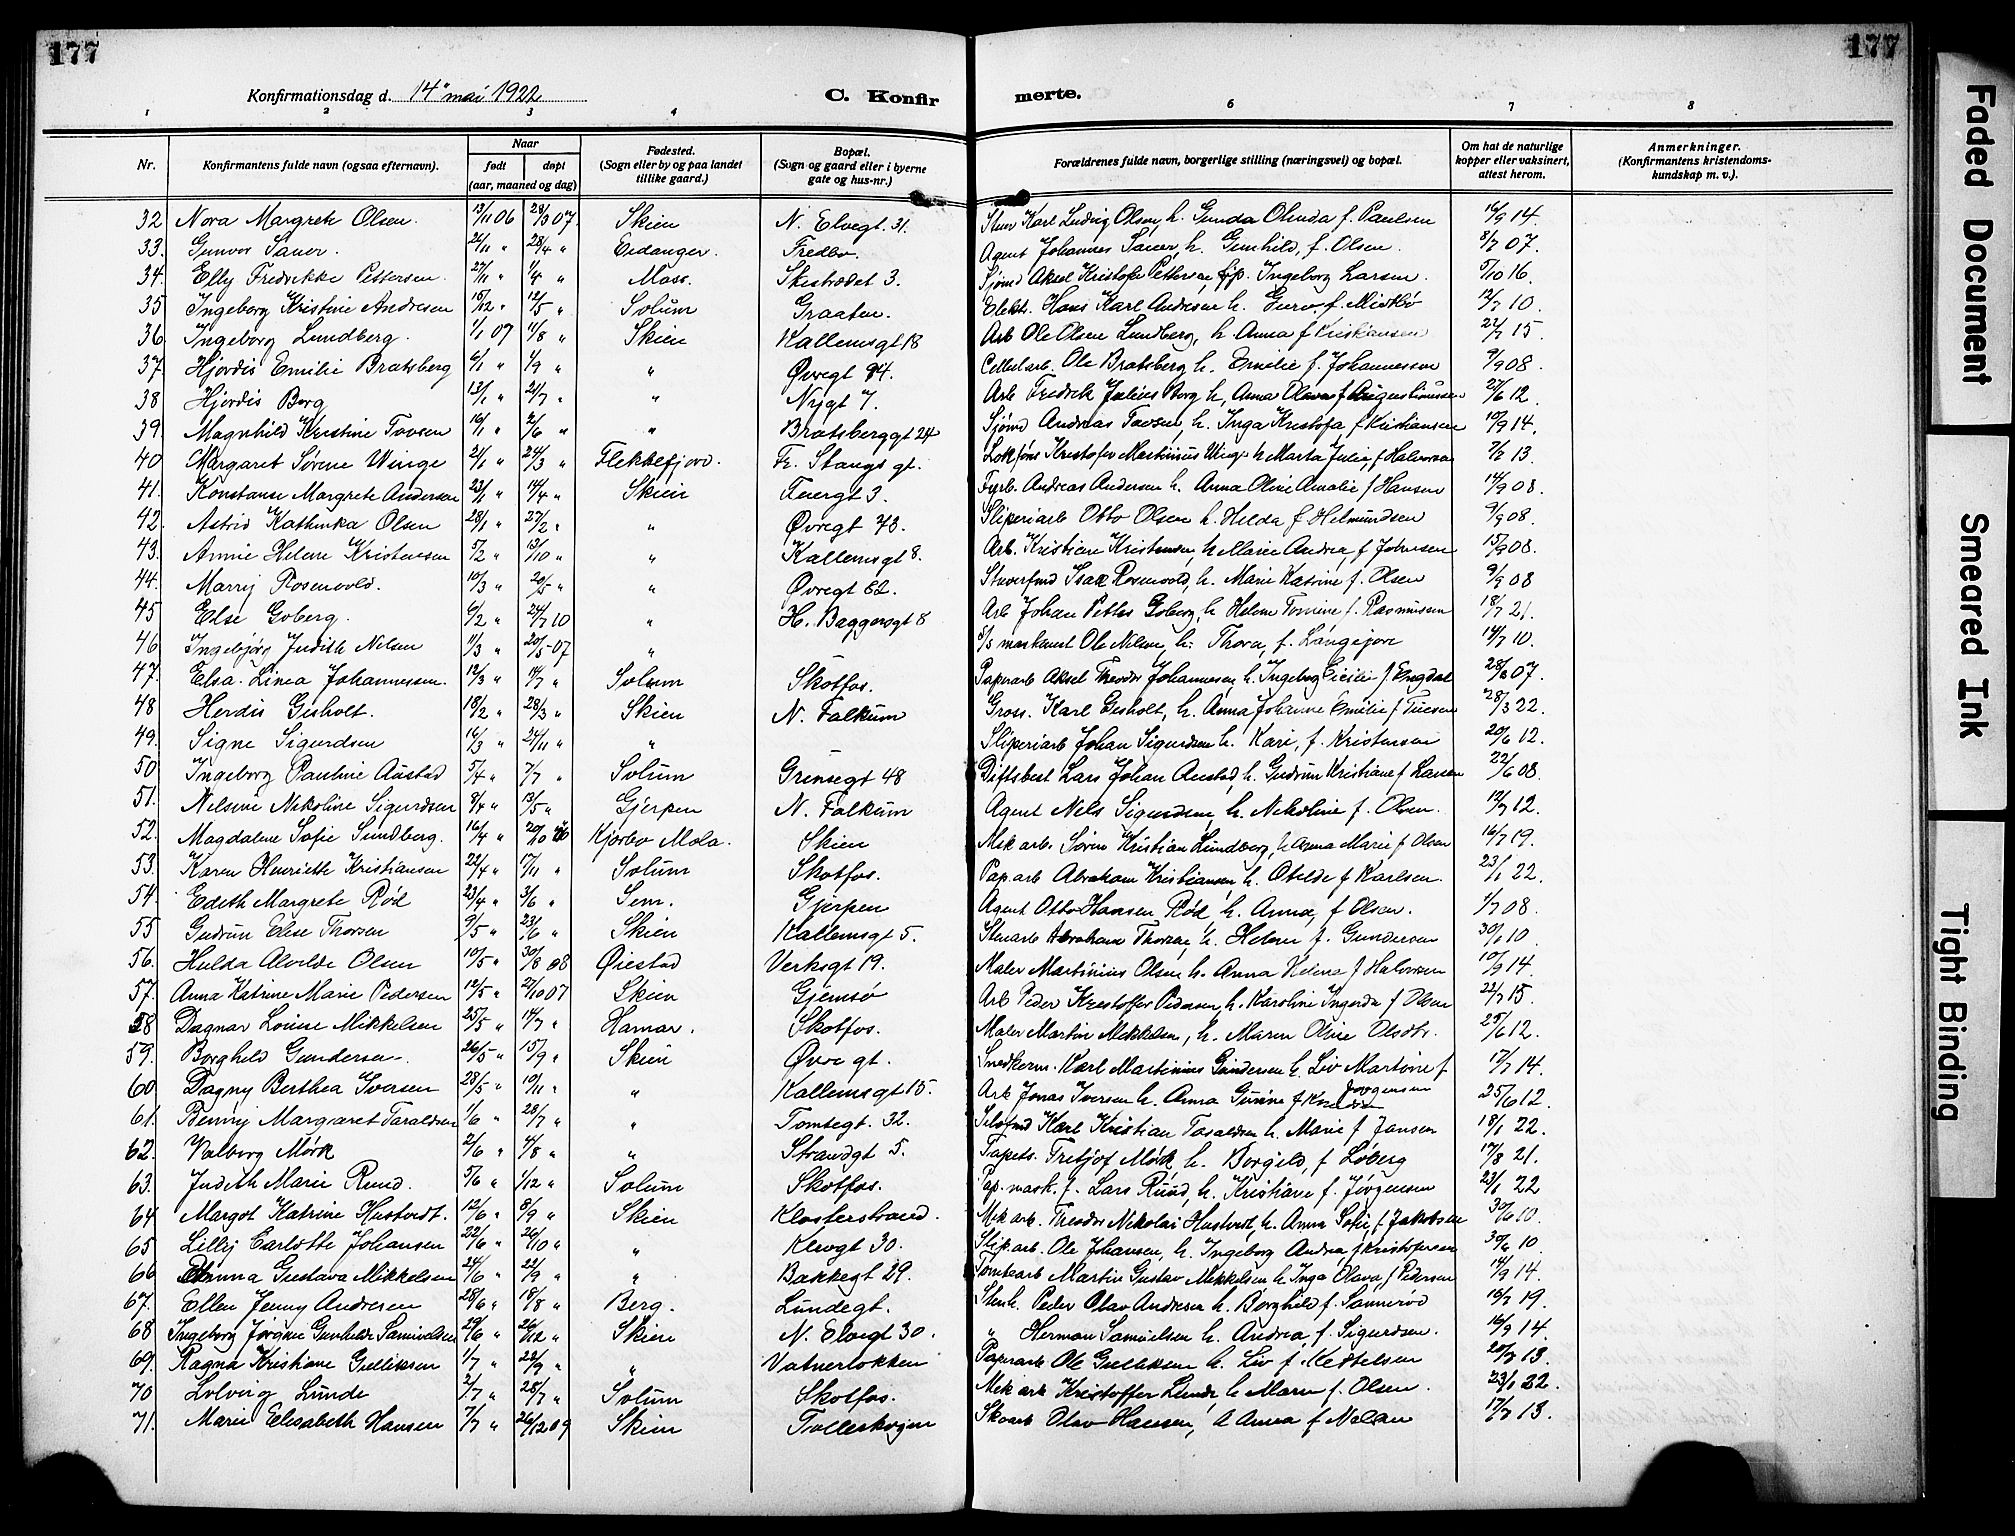 177
177
Konfirmationsdag d. 14de mai 1922
C. Konfir
merte.
1 2 3 4 5 6 7 8
Nr. Konfirmantens fulde navn (ogsaa efternavn). Naar født døpt (aar, maaned og dag) Fødested. (Sogn eller by og paa landet tillike gaard.) Bopæl. (Sogn og gaard eller i byerne gate og hus-nr.) Forældrenes fulde navn, borgerlige stilling (næringsvei) og bopæl. Om hat de naturlige kopper eller vaksinert, attest herom. Anmerkninger. (Konfirmantens kristendoms-kundskap m. v.).
32 Nora Margrete Olsen. 13/11 06 28/3 07. Skien N. Elvegt. 31. Karl Ludvig Olsen, h. Gunda Olinda f. Paulsen 16/9 14.
33. Gunvor Sauer. 21/11 " 28/4 " Eidanger. Fredbo. Agent Johannes Sauer, h. Gunhild, f. Olsen. 8/7 07.
34. Elly Fredrikke Pettersen. 27/11 " 1/4 " Moss. Skistrædet 3. Sjømd Aksel Kristofer Pettersen, Ingeborg Larsen. 5/10 16.
35 Ingeborg Kristine Andresen 15/12 " 12/5 " Solum Graaten. Elektr. Hans Karl Andresen h. Guro f. Midtbø 12/7 10.
36. Ingeborg Lundberg. 1/1 07 11/8 " Skien Kallemsgt 18 Arb Ole Olsen Lundberg, h. Anna f Kristiansen 22/7 15.
37. Hjørdis Emilie Bratsberg 6/1 " 1/9 " " Øvregt 94. Cellul arb. Ole Bratsberg h. Emilie f. Johannessen 9/9 08.
38 Hjørdis Borg 13/1 " 21/7 " " Nygt 7. Arb Fredrik Julius Borg h, Anna Olava f Augustinussen 27/6 12.
39. Magnhild Kristine Tovsen 16/1 " 2/6 " " Bratsberggt 24 Sjømd Andreas Tovsen, h. Inga Kristofa f Kristiansen 10/9 14.
40 Margaret Sørine Winge 21/1 " 24/3 " Flekkefjord. Fr. Stangs gt. Lokføre Kristofer Martinius Winge h Marta Julie, f Halvorsen 7/2 13.
41. Konstanse Margrete Andersen 23/1 " 14/4 " Skien Tuergt 3. Fyrb. Andreas Andersen h. Anna Oline Amalie f Hansen 14/9 08.
42. Astrid Kathinka Olsen 28/1 " 27/2 " " Øvregt 73. Sliperiarb Otto Olsen h. Helda f Helmundsen 9/9 08.
43. Annie Helene Kristensen 5/2 " 13/10 " " Kallemsgt 8. Arb. Kristian Kristensen, h Marie Andrea, f Johnsen 15/9 08.
44. Marry Rosenvold. 10/3 " 20/5 " " Øvregt 62. Isak Rosenvold, h. Marie Katrine f. Olsen 9/9 08
45 Else Goberg. 6/2 " 24/7 10 " H. Baggersgt 8 Arb Johan Petter Goberg, h Helene Tomine f. Rasmussen 18/7 21.
46 Ingebjørg Judith Nilsen 11/3 " 20/5 07 " S/s maskinist Ole Nilsen, h. Thora, f. Langejore 14/7 10.
47. Elsa Linea Johannessen. 12/3 " 14/7 " Solum Skotfos. Papirarb Aksel Theodor Johannessen, h. Ingeborg f. Engdal 28/6 07.
48 Herdis Gisholt. 18/2 " 28/3 " Skien N. Falkum Gross. Karl Gisholt, h. Anna Johanne Emilie f 28/3 22.
49. Signe Sigurdsen 16/3 " 24/11 " " Sliperiarb Johan Sigurdsen h. Kari, f. Kristensen 20/6 12.
50. Ingeborg Pauline Austad 5/4 " 7/7 " Solum Grensegt 48 Driftsbest Lars Johan Austad, h. Gudrun Kristiane f Larsen 22/6 08.
51. Nelsine Nikoline Sigurdsen 8/4 " 13/5 " Gjerpen N. Falkum Agent Nels Sigurdsen, h. Nekoline f. Olsen. 12/7 12.
52. Magdalene Sofie Sundberg. 16/4 " 20/10 Kjørbo Mola. Skien Mek arb. Sørn Kristian Lundberg, h Anna Marie f Olsen 16/7 19.
53. Karen Henriette Kristiansen 22/4 " 17/11 " Solum Skotfos. Pap. arb Abraham Kristiansen h. Otelde f Karlsen. 23/1 22.
54. Edith Margrete Rød 23/4 " 3/6 " Sem. Gjerpen Agent Otto Hansen Rød, h. Anna, f Olsen. 1/7 08.
55 Gudrun Elise Thorsen 9/5 " 23/6 " Skien Kallemsgt 5. Stenarb Abraham Thorsen, h. Helene f. Gundersen 30/6 10.
56. Hulda Alvilde Olsen 10/5 " 30/8 08 Øiestad Verksgt 19. Maler Martinius Olsen h. Anna Helene f Halvorsen 10/9 14.
57. Anna Katrine Marie Pedersen 12/5 " 27/10 07 Skien Gjemsø Arb Peder Kristoffer Pedersen, h. Karoline Ingarda f Olsen 22/7 15.
58 Dagnar Louise Mikkelsen 25/5 " 14/7 " Hamar. Skotfos. Maler Martin Mikkelsen, h. Maren Oline Olsdtr. 25/6 12.
59. Borghild Gundersen. 26/5 " 15/9 " Skien Øvre gt. Snedkerm. Karl Martinius Gundersen h. Liv Martine f Jørgensen 17/7 14.
60. Dagny Berthea Iversen 28/5 " 10/11 " " Kallemsgt 15. Arb Jonas Iversen h. Anna Gurine f Knudsen 25/6 12.
61. Benny Margaret Taraldsen 1/6 " 28/7 " " Tomtegt. 32. Karl Kristian Taraldsen h. Marie f Jansen 18/1 22.
62. Valborg Mørk 2/6 " 4/8 " " Strandgt 5. Tapets. Fretjof Mørk, h. Borgild, f Løberg 17/8 21.
63. Judith Marie Ruud. 5/6 " 1/12 " Solum Skotfos. Pap. mask. f. Lars Ruud, h. Kristiane f. Jørgensen 23/1 22
64 Margot Katrine Hustvedt. 12/6 " 8/9 " Skien Klosterstrand. Mek arb. Theodor Nikolai Hustvedt, h. Anna Sofie, f Jakobsen 30/6 10.
65. Lilly Carlotte Johansen 22/6 " 26/10 " " Klevgt 30. Slip. arb. Ole Johansen, h. Ingeborg Andrea f Kristofersen 30/6 10.
66 Anna Gustava Mikkelsen 24/6 " 22/9 " " Bakkegt 29. Tomtearb Martin Gustav Mikkelsen h. Inga Olava f Pedersen 14/9 14.
67. Ellen Jenny Andresen 28/6 " 18/8 " Berg. Lundegt. Stenh. Peder Olav Andresen h. Borghild f. Sannerød 10/7 19.
68 Ingeborg Jørgine Gunhilde Samuelsen 29/6 " 26/12 " Skien N. Elvegt 30. " Herman Samuelsen h. Andrea f. Sigurdsen. 16/9 14.
69. Ragna Kristiane Gulliksen 1/7 " 22/9 " " Vatnerløkken Papirarb Ole Gulliksen h. Liv f. Kettelsen 20/7 13.
70 Solveig Lunde 2/7 " 28/7 " Solum Skotfos. Mek arb Kristoffer Lunde h Maren f. Olsen. 23/1 22.
71. Marie Elisabeth Hansen 7/7 " 26/12 09 Skien Tollerskogen Skoarb Olav Hansen, h Anna f Nilsen 17/7 13.
Faded Document
Smeared Ink
Tight Binding